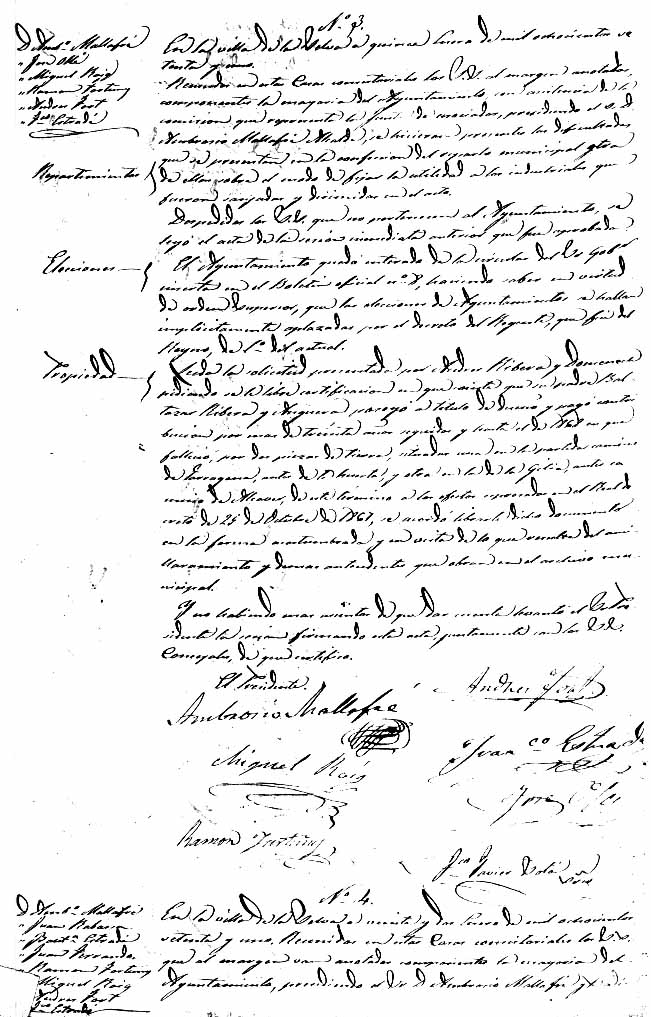 Nº 3.
D. Ambº. Mallafré
" José Ollé
" Miguel Roig
" Ramon Fortuny
" Andres Fort
" Fco. Estradé
En la villa de la Selva a quince Enero de mil ochocientos se
tenta y uno.
Reunidos en estas Casas consistoriales los S.S. al margen anotados,
componiendo la mayoria del Ayuntamiento, con asistencia de la
comision que representa la Junta de asociados, presidiendo el S. D.
Ambrosio Mallafré Alcalde, se hicieron presentes las dificultades
Repartimientos
que se presentan en la confeccion del reparto municipal
de sobre el modo de fijar la utilidad a los industriales que
fueron zanjadas y dirimidas en el acto.
Despedidos los S.S. que no pertenecen al Ayuntamiento, se
leyó el acta de la sesion inmediata anterior que fue aprobada
Elecciones
El Ayuntamiento queda enterado de la circular del Gobor.
inserta en el Boletin oficial nº 8, haciendo saber en virtud
de orden superior, que las elecciones de Ayuntamientos se hallan
implicitamente aplazadas por el decreto del Regente, que fue del
Reyno, de 1º del actual.
Propiedad
Leida la solicitud presentada por Andres Ribera y Domenech
pidiendo se le libre certificacion en que conste que su padre Bal
tazar Ribera y Anguera poseyó a titulo de dueño y pagó contri
bucion por mas de treinta años seguidos y hasta el de 1868 en que
falleció, por dos piezas de tierra, situadas una en la partida camino
de Tarragona, antes de y otra en la de la antes ca
mino de de este término a los efectos espresados en el Real de
creto de 25 de Octubre de 1867, se acordó librarle dicho documento
en la forma acostumbrada y en vista de lo que resulte del ami
llaramiento y demas antecedentes que obran en el archivo mu
nicipal.
Y no habiendo mas asuntos de que dar cuenta levantó el S. Pre
sidente la sesion firmando esta acta, juntamente con los S.S.
Concejales, de que certifico.
El Presidente.
Andres Fort
Ambrosio Mallafré
Franco Estradé
Miguel Roig
José Ollé
Ramon Fortuny
Fco.
Javier
Nº 4.
D. Ambº. Mallafré
" Juan
" Bautª. Estradé
" Juan
" Ramon Fortuny
Miguel Roig
Andres Fort
Fco. Estradé
En la villa de la Selva a veinte y dos Enero de mil ochocientos
setenta y uno. Reunidos en estas Casas consistoriales los S.S.
que al margen van anotados componiendo la mayoria del
Ayuntamiento, presidiendo el S. D. Ambrosio Mallafré